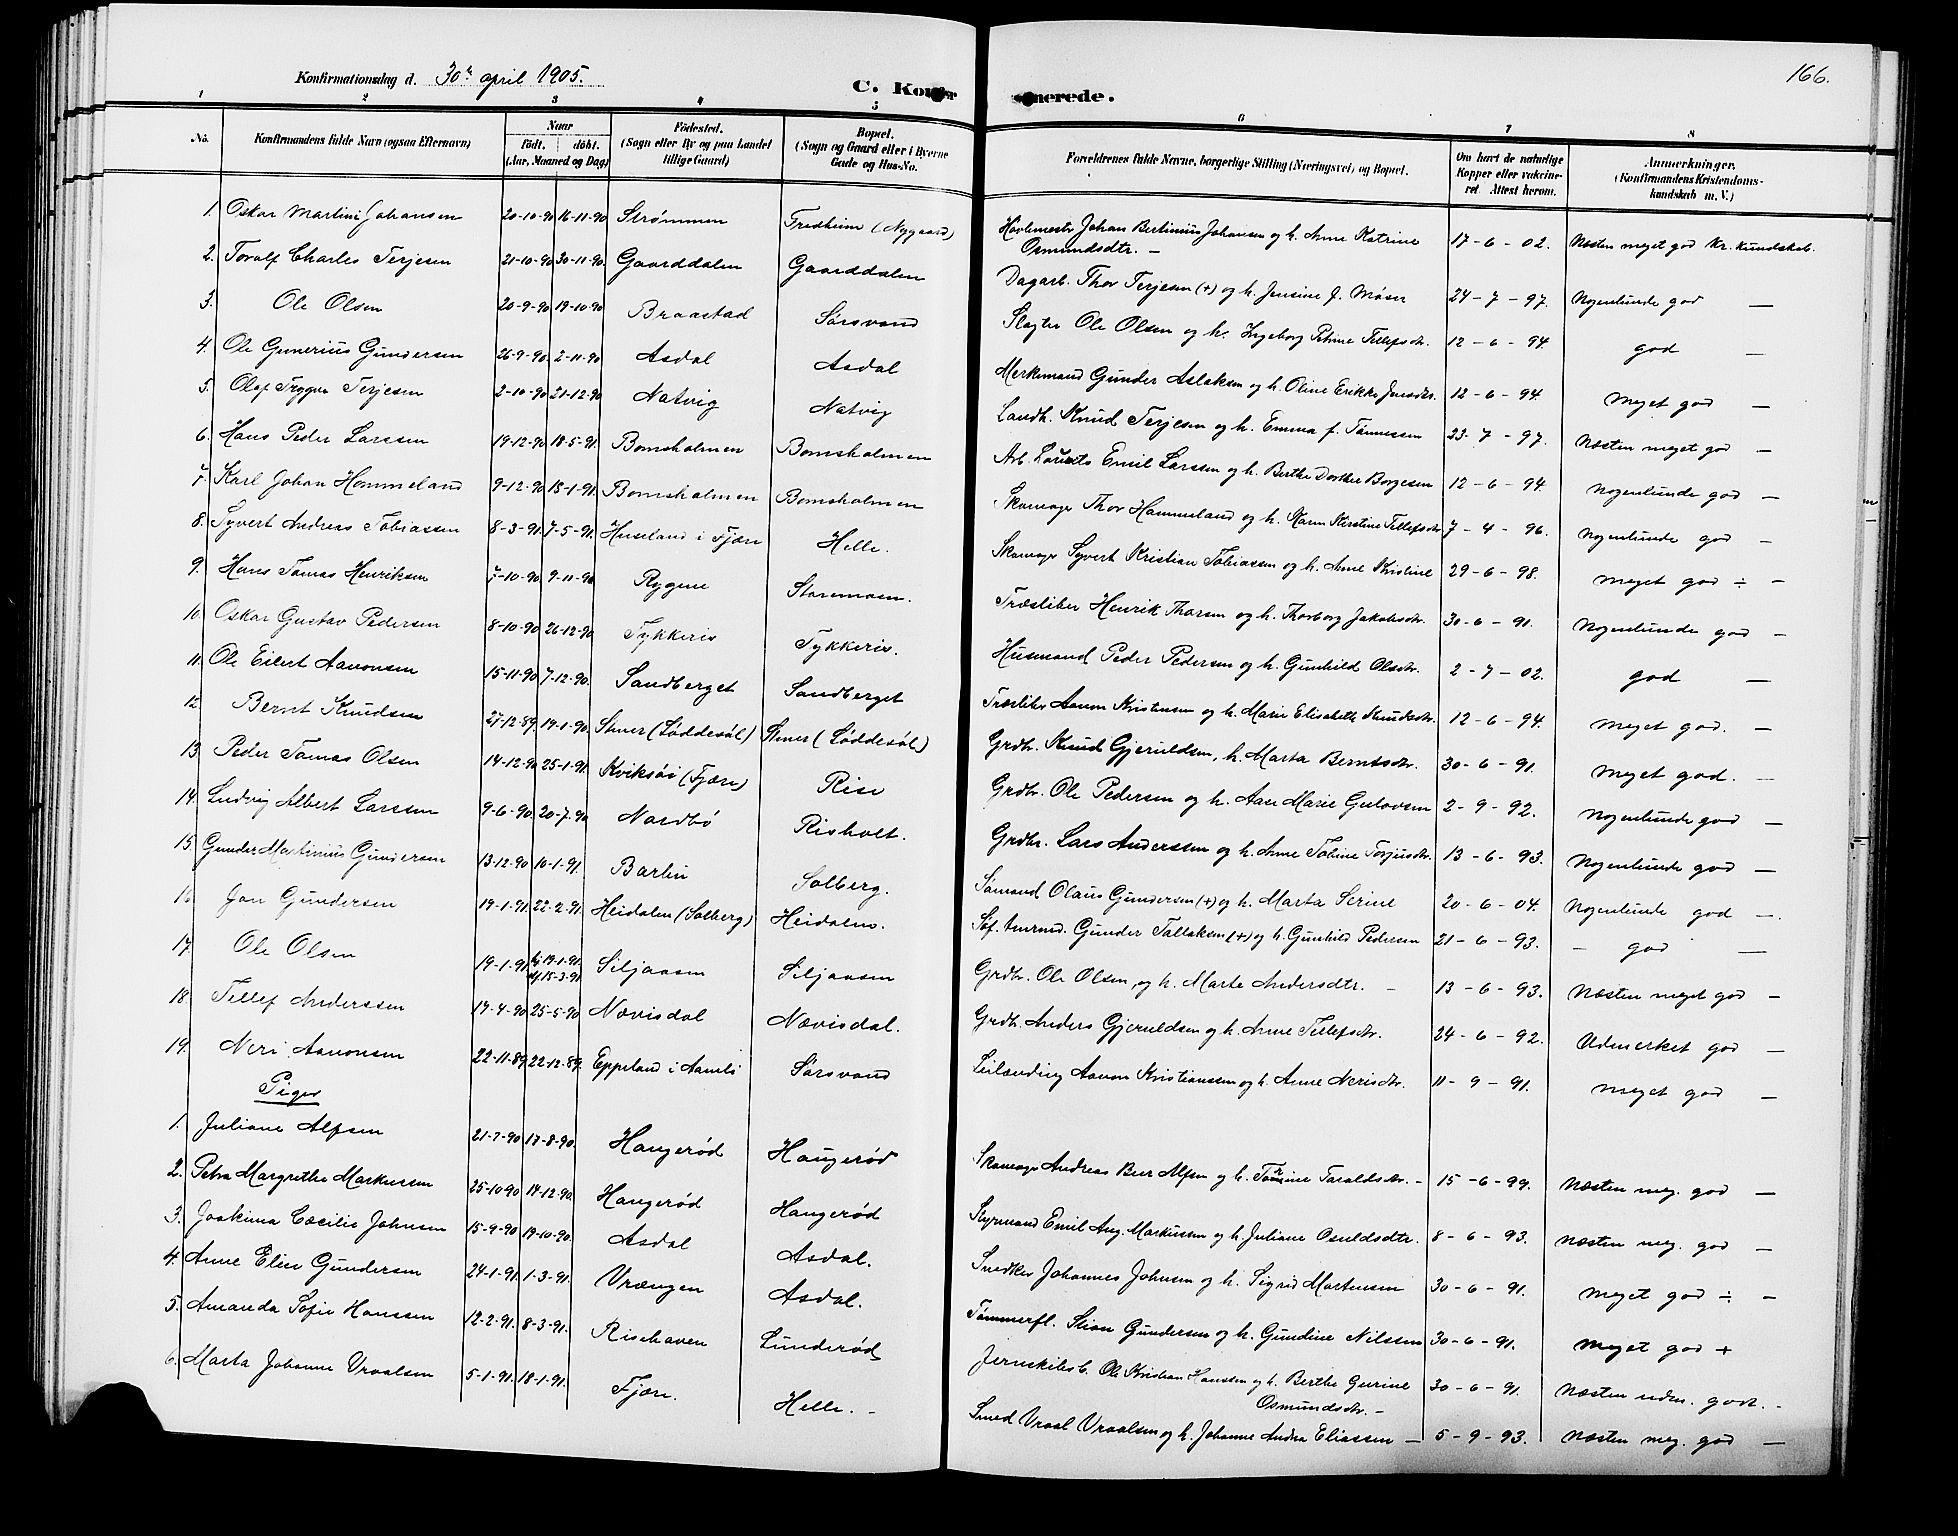 Konfirmationsdag d. 30te april 1905.
C. Konfir merede.
166.
1 2 3 4 5 6 7 8
No. Konfirmandens fulde Navn (ogsaa Efternavn) Naar födt. döbt. (Aar, Maaned og Dag) Födested. (Sogn eller By og paa Landet tillige Gaard) Bopæl. (Sogn og Gaard eller i Byerne Gade og Hus-No. Forældrenes fulde Navne, borgerlige Stilling (Næringsvei) og Bopæl. Om havt de naturlige Kopper eller vakcineret. Attest herom. Anmærkninger. (Konfirmandens Kristendomskundskab m. V.)
1. Oskar Martini Johansen 20-10-90 16-11-90 Strømmen Fredheim (Nygaard) Johan Bertinius Johansen og h. Anne Katrine Osmundsdtr. — 17-6-02. Næsten meget god Kr. kundskab.
2. Torolf Charles Terjesen 21-10-90 30-11-90. Gaarddalen Gaarddalen Dagarb. Thor Terjesen (+) og h. Jensine J. Møser 24-7-97. Nogenlunde god —
3. Ole Olsen 20-9-90 19-10-90 Braastad Sørsvand Slagter Ole Olsen og h. Ingeborg Petrine Tellefsdtr. 12-6-94. god —
4. Ole Gunerius Gundersen 26-9-90. 2-11-90 Asdal Asdal Merkemand Gunder Aslaksen og h. Oline Erikke Jensdtr. 12-6-94. Meget god —
5. Olaf Trygve Terjesen 2-10-90 21-12-90 Natvig Natvig Landh. Knud Terjesen og h. Emma f. Tønnessen 23-7-97. Næsten meget god —
6. Hans Peder Larssen 19-12-90 18-5-91. Bomsholmen Bomsholmen Arb. Laurits Emil Larssen og h. Berthe Dorthea Borgesen 12-6-94. Nogenlunde god —
7. Karl Johan Hommeland 9-12-90 18-1-91. Bomsholmen Bomsholmen Skomager Thor Hammeland og h. Karen Kirstine Tellefsdtr 7-4-96. Nogenlunde god —
8. Syvert Andreas Tobiassen 8-3-91. 7-5-91. Huseland i Fjære Helle. Skomager Syvert Kristian Tobiassen og h. Anne Kristine 29-6-98. meget god ÷ —
9. Hans Tomas Henriksen 7-10-90 9-11-90 Rygene Storemoen. Træsliber Henrik Thorsen og h. Thorborg Jakobsdtr. 30-6-91. Nogenlunde god —
10. Oskar Gustav Pedersen 8-10-90 26-12-90. Tykkeris Tykkeris. Husmand Peder Pedersen og h. Gunhild Olsdtr. 2-7-02. god —
11. Ole Eilert Aanonsen 15-11-90 7-12-90. Sandberget Sandberget Træsliber Aanon Kristensen og h. Marie Elisabeth Knudsdtr. 12-6-94. meget god. —
12. Bernt Knudsen 27-12-89. 19-1-90. Stener (Løddesøl) Stener (Løddesøl) Grdbr. Knud Gjeruldsen, h. Marta Berntsdtr. 30-6-91. Meget god. —
13. Peder Tomas Olsen 14-12-90 25-1-91. Kviksøi (Fjære) Rise Grdbr. Ole Pedersen og h. Aase Marie Gulovsen 2-9-92. Nogenlunde god —
14. Ludvig Albert Larssen 9-6-90. 20-7-90 Nordbø Risholt. Grdbr. Lars Anderssen og h. Anne Tobine Torjusdtr. 13-6-93. Nogenlunde god —
15. Gunder Martinius Gundersen 13-12-90 10-1-91. Barlin Solberg. Sømand Olaus Gundersen (+) og h. Marta Serine 20-6-04. Nogenlunde god —.
16. Jon Gundersen 19-1-91. 22-2-91. Heidalen (Solberg) Heidalen. Gunder Tallaksen (+) og h. Gunhild Pedersen 21-6-93. — god —
17. Ole Olsen 19-1-91. 19-1-91. 15-3-91 Siljaasen Siljaasen Grdbr. Ole Olsen, og h. Marte Andersdtr. — 13-6-93. Næsten meget god —
18. Tellef Anderssen 17-4-90 25-5-90 Nævisdal Nævisdal. Grdbr. Anders Gjeruldsen og h. Anne Tellefsdtr. 24-6-92. Udmerket god —
19. Neri Aanonsen 22-11-89 22-12-89. Eppeland i Aamli Sørsvand Leilænding Aanon Kristianssen og h. Anne Nerisdtr. 11-9-91. meget god —
Piger
1. Juliane Alfsen 21-7-90 17-8-90. Haugerød Haugerød Skomager Andreas Beer Alfsen og h. Tomine Taraldsdtr. — 15-6-99. Næsten meg. god —
2. Petra Margrethe Markussen 25-10-90 14-12-90. Haugerød Haugerød Styrmand Emil Aug. Markussen og h. Juliane Osuldsdtr. 8-6-93. næsten meg. god —
3. Joakima Cæcilie Johnsen 15-9-90 19-10-90. Asdal Asdal. Snedker Johannes Johnsen og h. Sigrid Martensen 30-6-91. meget god ÷ —
4. Anne Elise Gundersen 24-1-91. 1-3-91. Vrængen Asdal. Tømmerfl. Stian Gundersen og h. Gundine Nilssen 30-6-91. Meget god +
5. Amanda Sofie Hanssen 12-2-91. 8-3-91. Rishaven Lunderød Ole Kristian Hanssen og h. Berthe Gurine Osmundsdtr. — 30-6-91. Næsten udm. godt. —
6. Marta Johanne Vraalsen 5-1-91. 18-1-91. Fjære. Helle. — Smed Vraal Vraalsen og h. Johanne Andrea Eliassen — 5-9-93. Næsten meg. god —